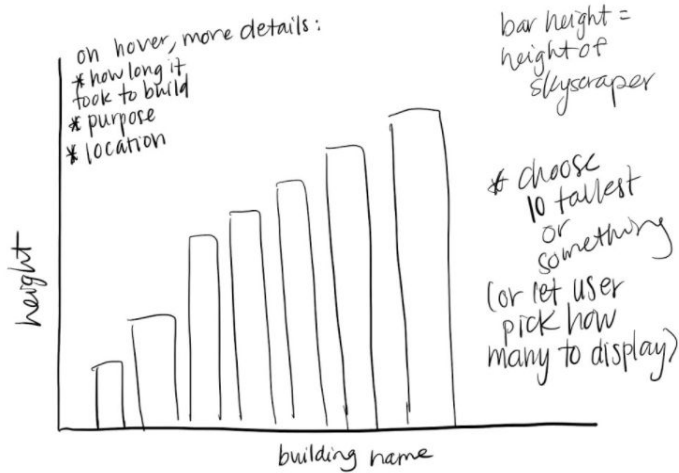 on hover, more details:
* how long it
took to build
* purpose
* location
bar height =
height of
skyscraper
* choose
10 tallest
or
something
(or let user
pick how
many to display)
height
building name